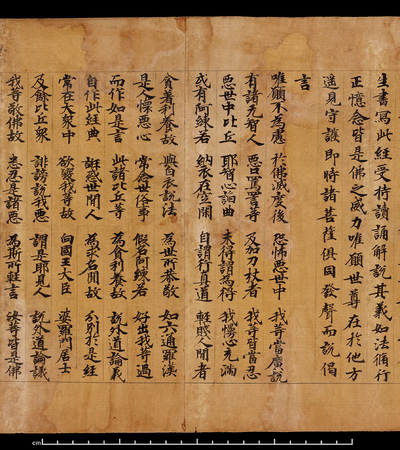 生書寫此經受持讀誦解說其義如法脩行
正憶念皆是佛之威力唯願世尊在於他方
遥見守護即時諸菩薩俱同發聲而說偈
言
唯願不為慮 於佛滅度後 恐怖惡世中 我等當廣說
有諸无智人 惡口罵詈等 及加刀杖者 我等皆當忍
惡世中比丘 耶智心諂曲 未得謂為得 我慢心充滿
或有阿練若 納衣在空閑 自謂行真道 輕賤人間者
貪著利養故 與白衣說法 為世所恭敬 如六通羅漢
是人懷惡心 常念世俗事 假名阿練若 好出我等過
而作如是言 此諸比丘等 為貪利養故 說外道論義
自作此經典 誑惑世間人 為求名聞故 分別於是經
常在大眾中 欲毀我等故 向國王大臣 婆羅門居士
及餘比丘眾 誹謗說我惡 謂是耶見人 說外道論議
我等敬佛故 悉忍是諸惡 為斯所輕言 汝等皆是佛
cm